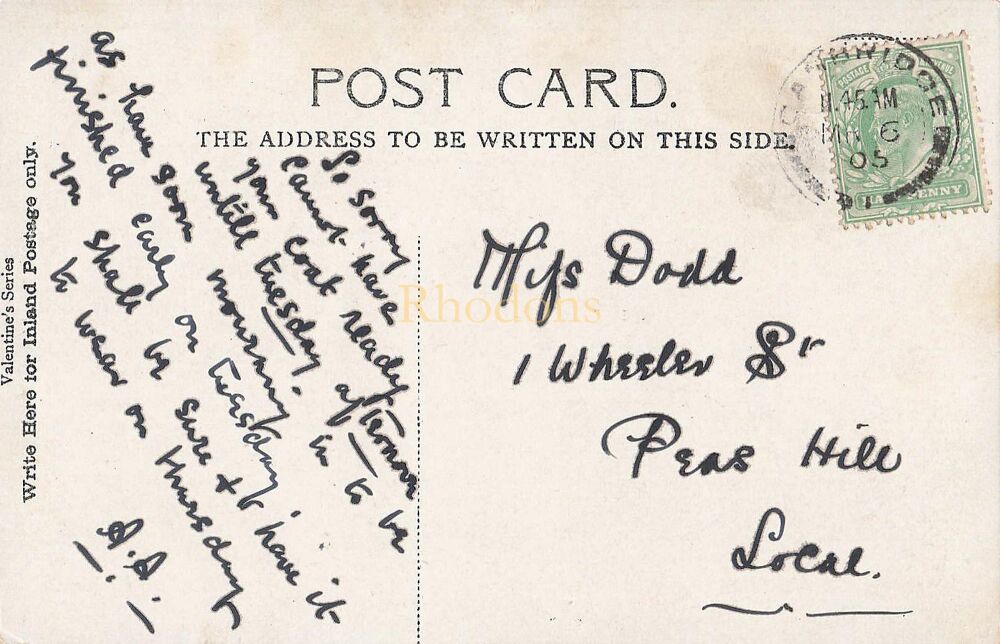 POST CARD.
THE ADDRESS TO BE WRITTEN ON THIS SIDE.
Valentine's Series
Write Here for Inland Postage only.
So sorry
cannot have
your coat ready
untill tuesday afternoon
as have soon mourning in to be
finished early on tuesday,
you shall be sure & have it
to wear on thursday
A.A.
Miss Dodd
1 Wheeler St
Peas Hill
Local.
CAMBRIDGE
11.45 AM
6
05
POSTAGE
HALFPENNY
Rhodons